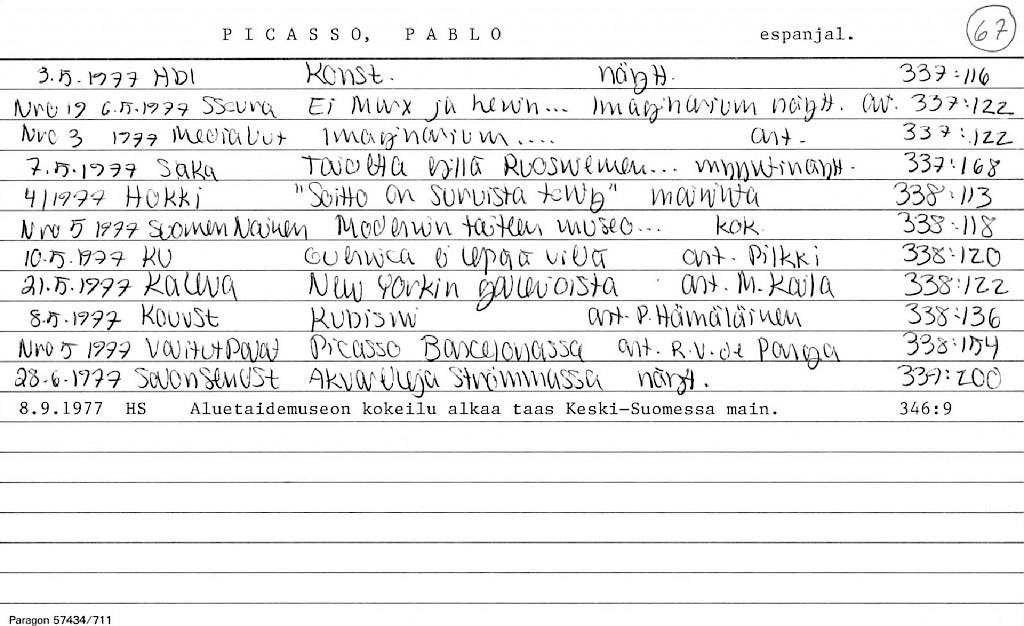 PICASSO, PABLO espanjal. 67
3.5.1977 HBl Konst. näytt. 337:116
Nro 19 6.5.1977 SSeura Ei Marx ja Lenin... Imaginarium näytt. art. 337:122
Nro 3 1977 Medialut Imaginarium.... art. 337:122
7.5.1977 SaKa Taidetta sillä Ruoswemen... myyntinäytt. 337:168
4/1977 Hokki "Soitto on suruista tehty" maininta 338:113
Nro 5 1977 Suomen Nainen Modernin taiteen museo... kok. 338:118
10.5.1977 KU Guernica ei lepää vielä art. Pilkki 338:120
21.5.1977 Kaleva New Yorkin gallerioista art. M. Kaila 338:122
8.5.1977 KouvSt Kubismi art. P. Hämäläinen 338:136
Nro 5 1977 Valitut Palat Picasso Barcelonassa art. R.V. de Panga 338:154
28.6.1977 SavonSanSt Akvarelleja Strömmassa näytt. 339:200
8.9.1977 HS Aluetaidemuseon kokeilu alkaa taas Keski-Suomessa main. 346:9
Paragon 57434/711